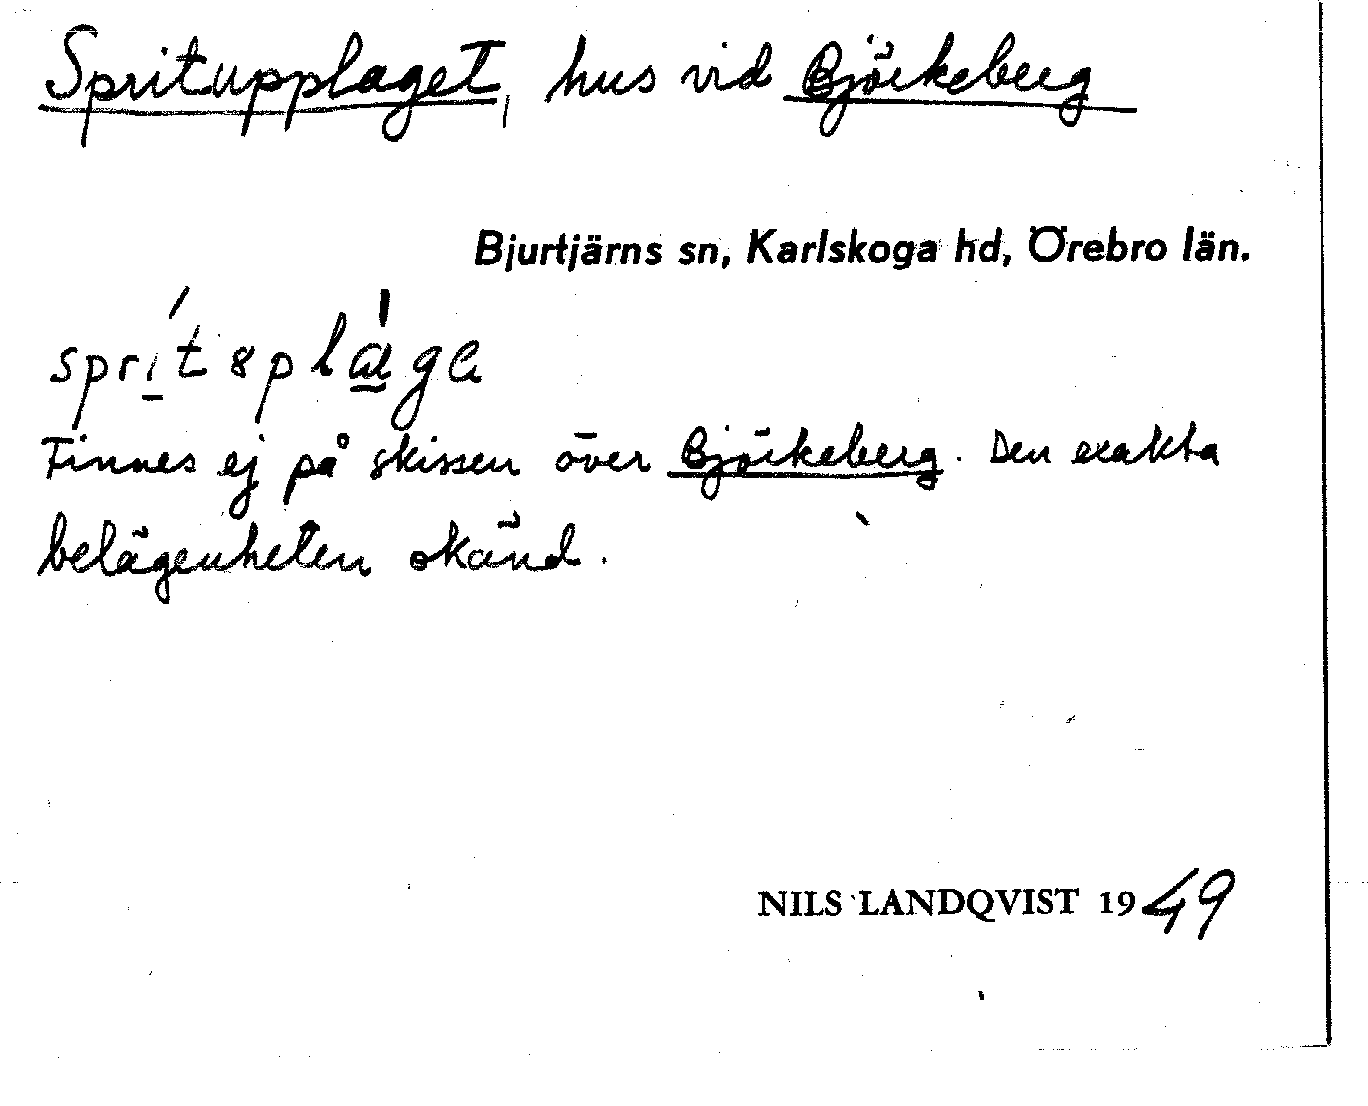 Spritupplaget, hus vid Björkeberg
Bjurtjärns sn, Karlskoga hd, Örebro län.
Finnes ej på skissen över Björkeberg. Den exakta
belägenheten okänd.
NILS LANDQVIST 1949